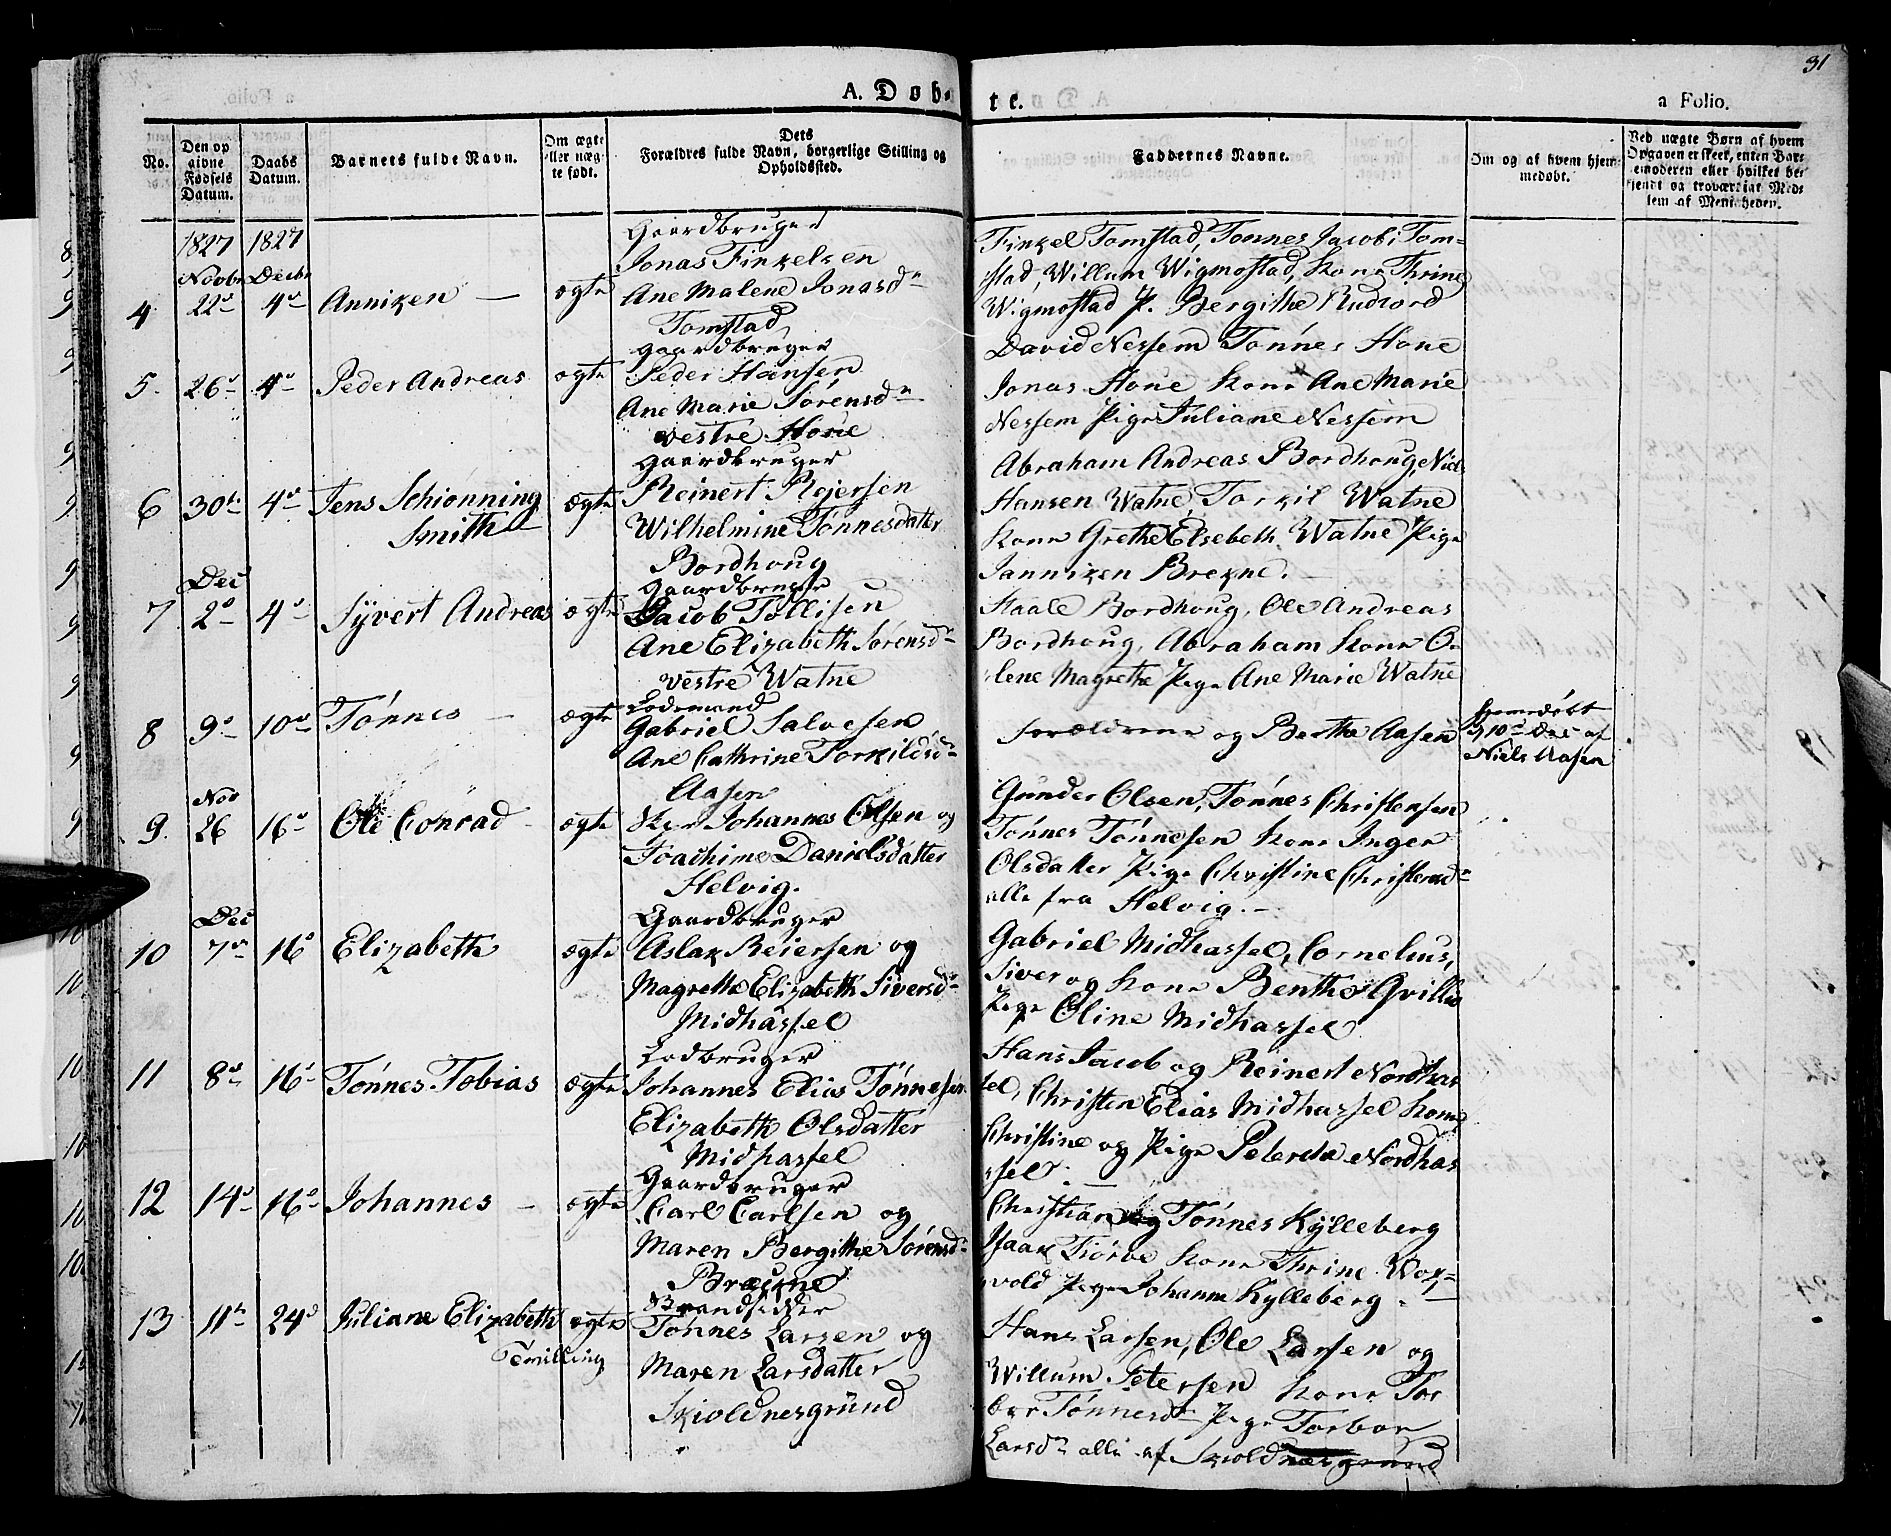 31
A. Døb-
te.
a Folio.
No.
Den op
givne
Fødsels
Datum.
Daabs
Datum.
Barnets fulde Navn.
Om ægte
eller uæg-
te født.
Dets
Forældres fulde Navn, borgerlige Stilling og
Opholdssted.
Faddernes Navne.
Om og af hvem hjem-
medøbt.
Ved uægte Børn af hvem
Opgaven er skeet, enten Bar-
nemoderen eller hvilket be-
kjendt og troværdigt Med-
lem af Menigheden.
1827 1827
Novbr Decbr
4 22d 4d Anniken — ægte
Gaardbruger
Jonas Finkelsen
Ane Malene Jonasdr
Tomstad
Finkel Tomstad, Tønnes Jacob Tom-
stad, Willum Wigmostad, Kone Thrine
Wigmostad P. Bergithe Rudjord
5. 26d 4d Peder Andreas ægte
Gaardbruger
Peder Hansen
Ane Marie Sørensdr
vestre Houe
David Nessem Tønnes Houe
Jonas Houe Kone Ane Marie
Nessem Pige Juliane Nessem
6 30te 4d Jens Schionning
Smith
ægte
Gaardbruger
Reinert Rejersen
Wilhelmine Tønnesdatter
Bordhoug
Abraham Andreas Bordhoug, Niels
Hansen Watne, Torkil Watne
Kone Grethe Elsebeth Watne Pige
Janniken Brekne.
Dec
7 2d 4d Syvert Andreas ægte
Gaardbruger
Jacob Tollisen
Ane Elizabeth Sørensdr
vestre Watne
Staale Bordhoug, Ole Andreas
Bordhoug, Abraham Kone O-
lene Magrethe Pige Ane Marie Watne
8 9d 10de Tønnes — ægte
Lodsmand
Gabriel Salvesen
Ane Cathrine Torkildsdr
Aasen
Forældrene og Berthe Aasen
hjemdøbt
10d Dec af
Niels Aasen
Nov
9. 26 16d Ole Conrad ægte
Johannes Olsen og
Joachime Danielsdatter
Helvig.
Gunder Olsen, Tønnes Christensen
Tønnes Tønnesen Kone Inger
Olsdatter Pige Christine Christensdr
alle fra Helvig. —
Dec
10 7de 16d Elizabeth ægte
Gaardbruger
Aslak Reiersen og
Magrethe Elizabeth Siversdr
Midhassel
Gabriel Midhassel, Cornelius,
Siver og Kone Benthe
Pige Oline Midhassel
11 8de 16d Tønnes Tobias ægte
Lodbruger
Johannes Elias Tønnesen
Elizabeth Olsdatter
Midhassel
Hans Jacob og Reinert Nordhas-
sel, Christen Elias Midhassel Kone
Christine og Pige Nordhas
sel. —
12 14d 16d Johannes — ægte
Gaardbruger
Carl Carlsen og
Maren Bergithe Sørensdr
Brekne
Christian og Tønnes Kylleberg
Isaak Tiørve Kone Thrine Wox-
vold Pige Johanne Kylleberg.
13 11te 24d Juliane Elizabeth
Tvilling
ægte
Strandsidder
Tønnes Larsen og
Maren Larsdatter
Skioldnesgrund
Hans Larsen, Ole Larsen og
Willum Petersen Kone Tor
bor Tønnesdr Pige Torbor
Larsdr alle af Skioldnesgrund